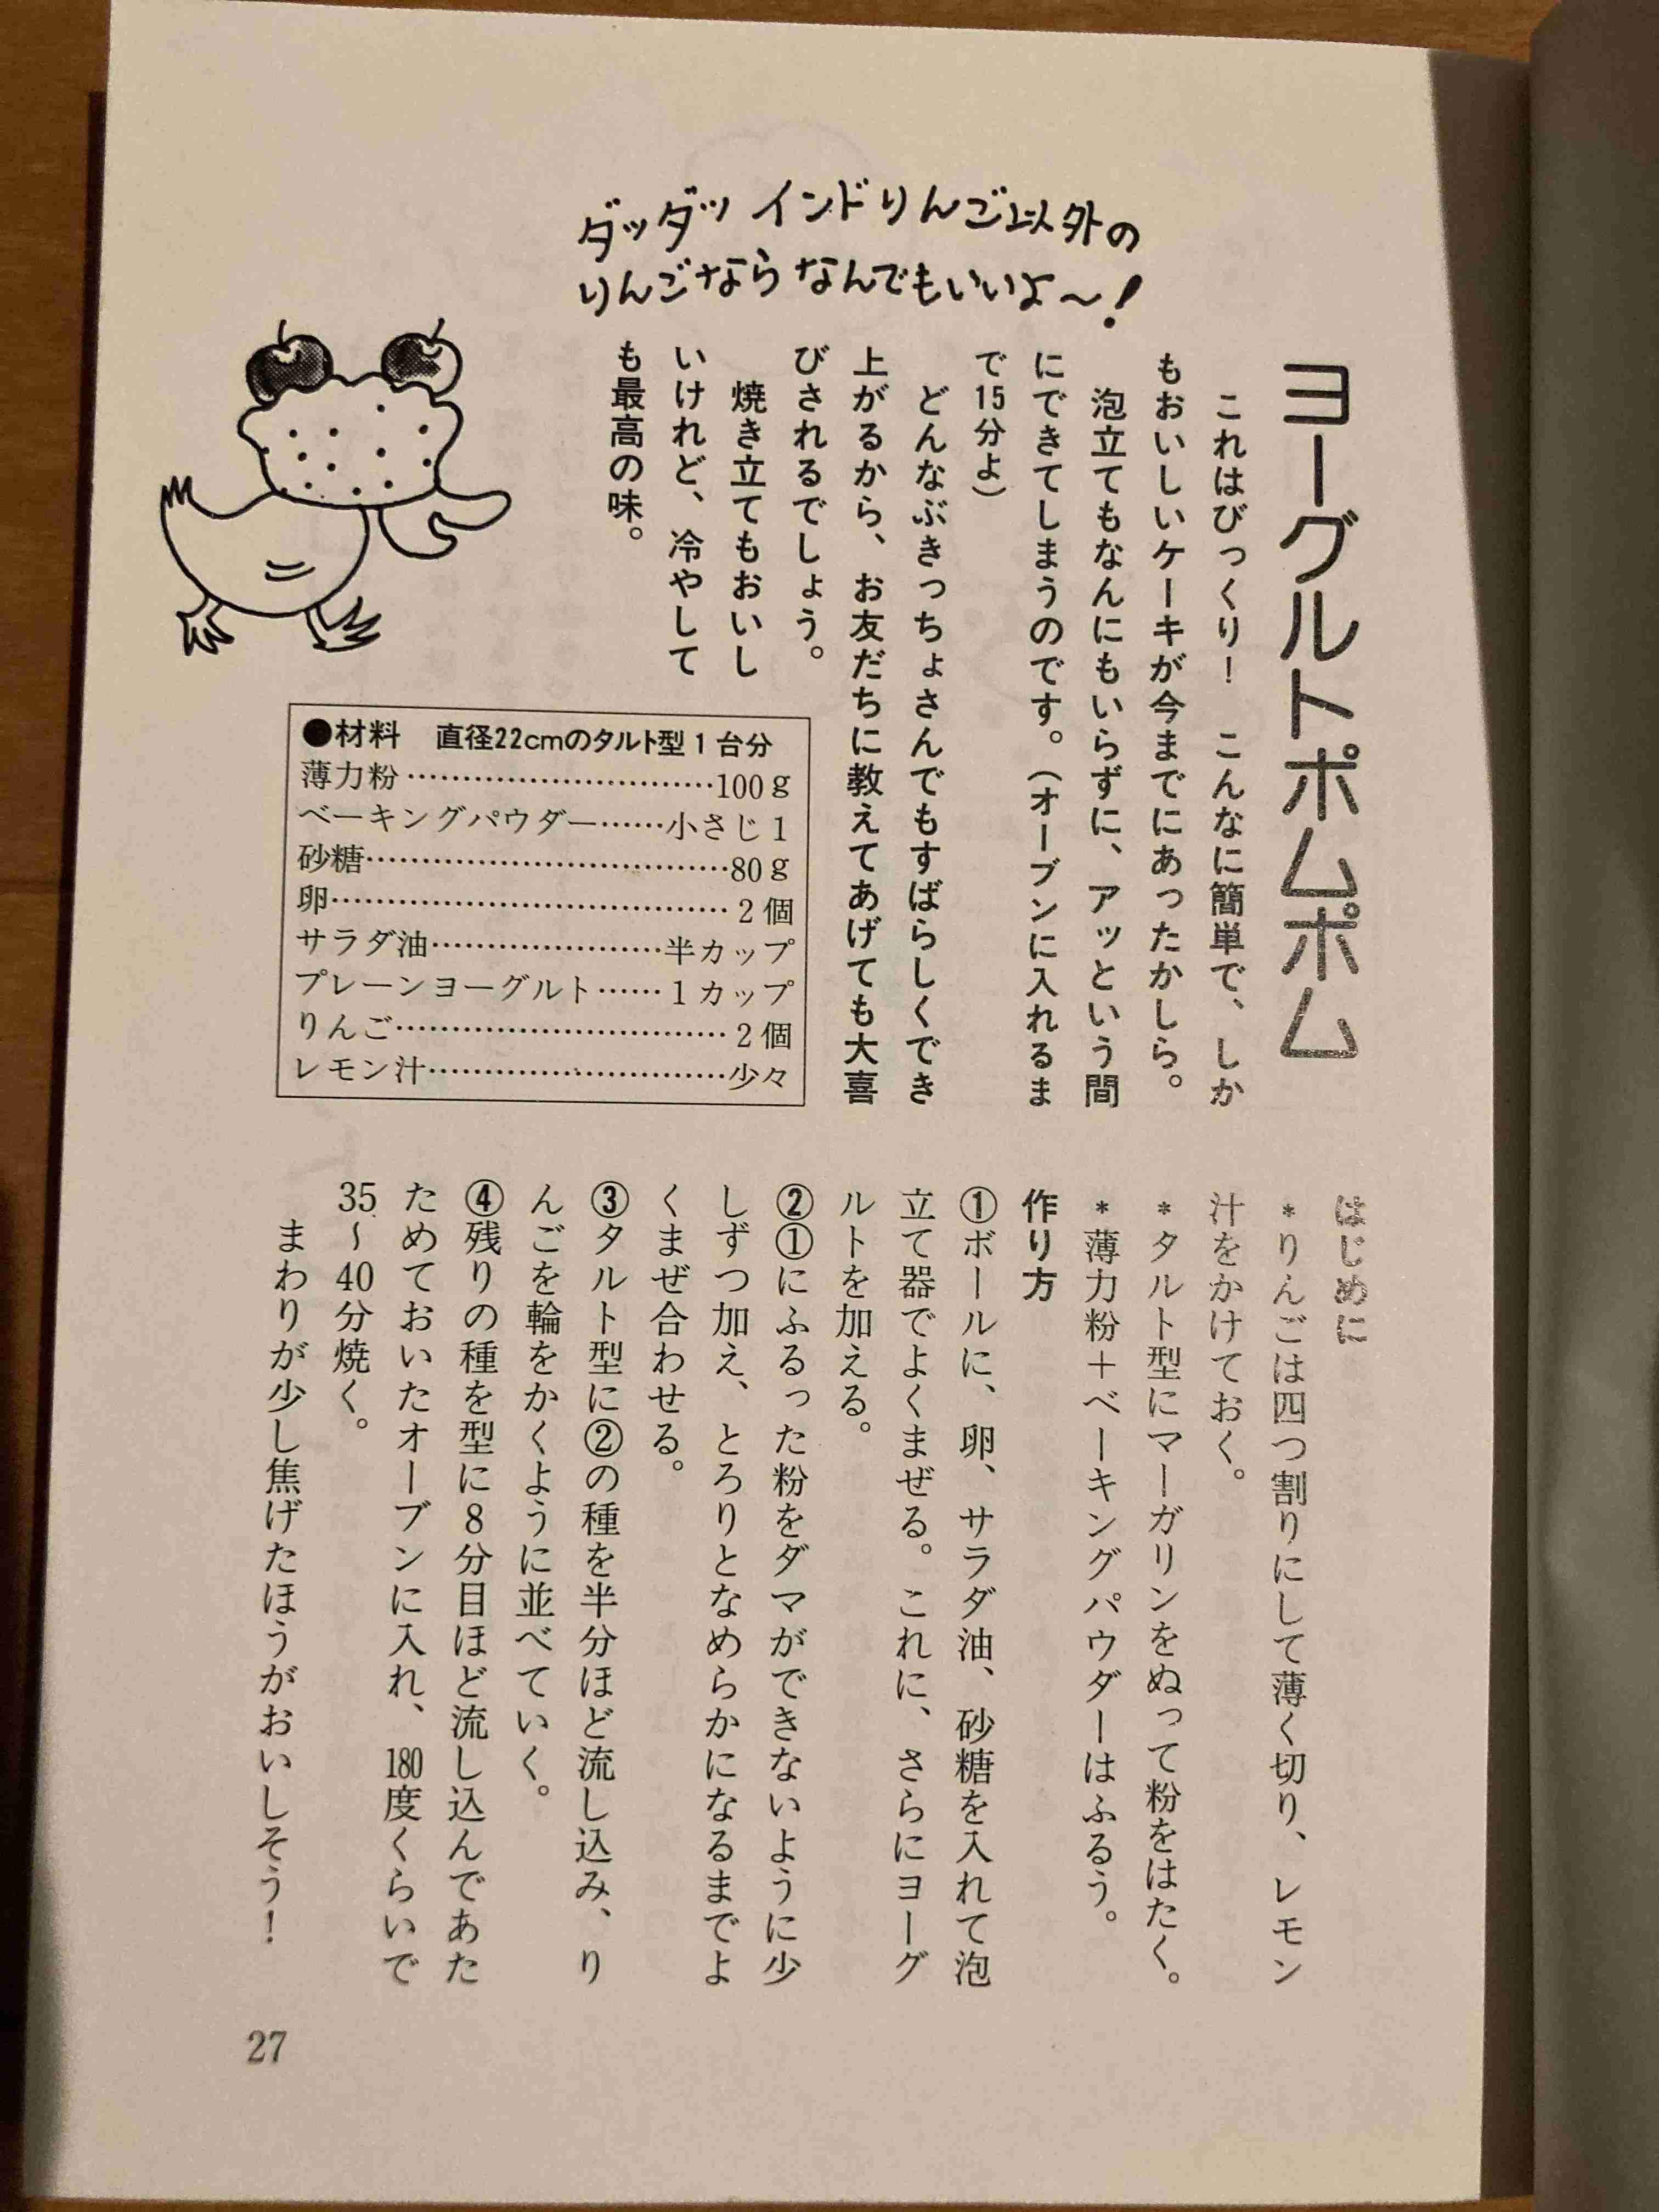 ダッダッ インドりんご以外の
りんごなら なんでもいいよ〜！
ヨーグルトポムポム
これはびっくり！　こんなに簡単で、しか
もおいしいケーキが今までにあったかしら。
泡立てもなんにもいらずに、アッという間
にできてしまうのです。（オーブンに入れるま
で15分よ）
どんなぶきっちょさんでもすばらしくでき
上がるから、お友だちに教えてあげても大喜
びされるでしょう。
焼き立てもおいし
いけれど、冷やして
も最高の味。
●材料　直径22cmのタルト型１台分
薄力粉…………………………100ｇ
ベーキングパウダー……小さじ１
砂糖………………………………80ｇ
卵…………………………………２個
サラダ油……………………半カップ
プレーンヨーグルト……１カップ
りんご……………………………２個
レモン汁…………………………少々
はじめに
＊りんごは四つ割りにして薄く切り、レモン
汁をかけておく。
＊タルト型にマーガリンをぬって粉をはたく。
＊薄力粉＋ベーキングパウダーはふるう。
作り方
①ボールに、卵、サラダ油、砂糖を入れて泡
立て器でよくまぜる。これに、さらにヨーグ
ルトを加える。
②①にふるった粉をダマができないように少
しずつ加え、とろりとなめらかになるまでよ
くまぜ合わせる。
③タルト型に②の種を半分ほど流し込み、り
んごを輪をかくように並べていく。
④残りの種を型に８分目ほど流し込んであた
ためておいたオーブンに入れ、180度くらいで
35〜40分焼く。
まわりが少し焦げたほうがおいしそう！
27